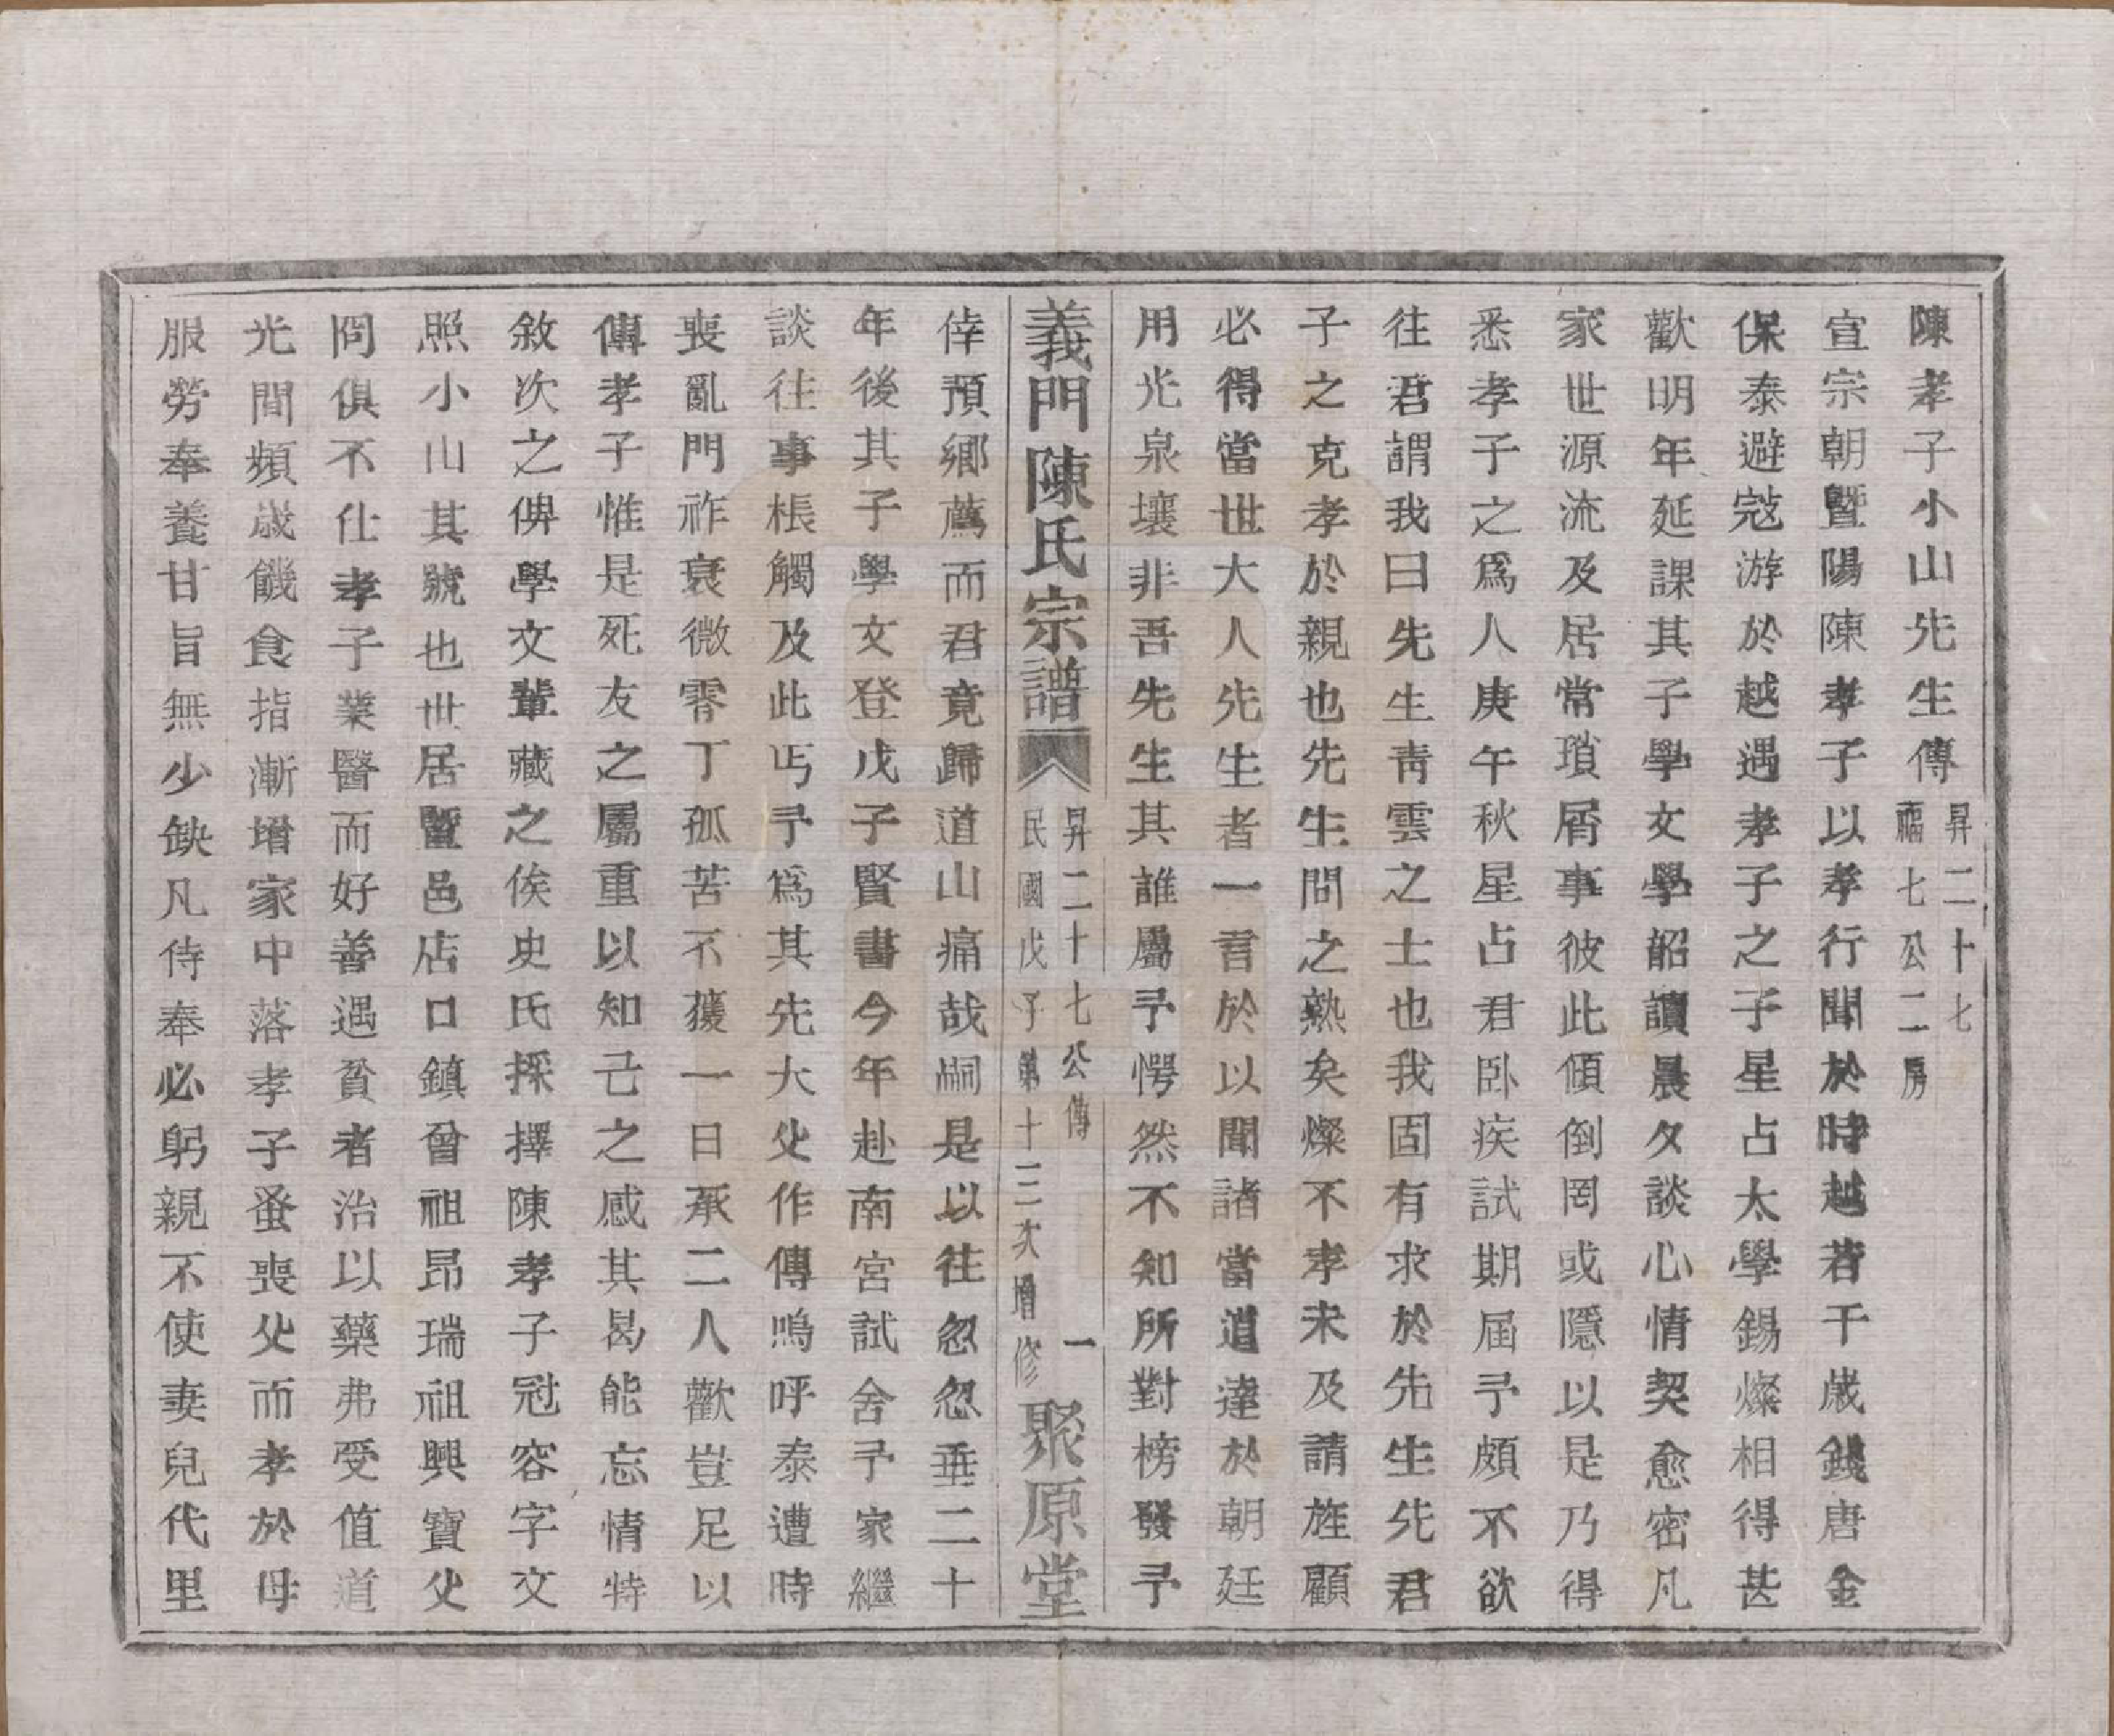 陳孝子小山先生傳 昇二十七 福七公二房
宣宗朝曁陽陳孝子以孝行聞於時越若干歲錢唐金
保泰避宼游於越遇孝子之子星占太學錫燦相得甚
歡明年延課其子學文學韶讀晨夕談心情契愈密凡
家世源流及居常瑣屑事彼此傾倒罔或隱以是乃得
悉孝子之爲人庚午秋星占君卧疾試期屆予頗不欲
往君謂我曰先生靑雲之士也我固有求於先生先君
子之克孝於親也先生問之熟矣燦不孝未及請旌顧
必得當世大人先生者一言於以聞諸當道達於朝廷
用光泉壤非吾先生其誰屬予愕然不知所對榜發予
義門陳氏宗譜 昇二十七公傳 一 民國戊子第十三次增修 聚原堂
倖預鄉薦而君竟歸道山痛哉嗣是以往忽忽垂二十
年後其子學文登戊子賢書今年赴南宮試舍予家繼
談往事棖觸及此丐予爲其先大父作傳嗚呼泰遭時
喪亂門祚衰微零丁孤苦不獲一日承二人歡豈足以
傳孝子惟是死友之屬重以知己之感其曷能忘情特
敘次之俾學文輩藏之俟史氏採擇陳孝子冠容字文
照小山其號也世居曁邑店口鎮曾祖昂瑞祖興寶父
冏俱不仕孝子業醫而好善遇貧者治以藥弗受值道
光間頻歲饑食指漸增家中落孝子蚤喪父而孝於母
服勞奉養甘旨無少缺凡侍奉必躬親不使妻兒代里